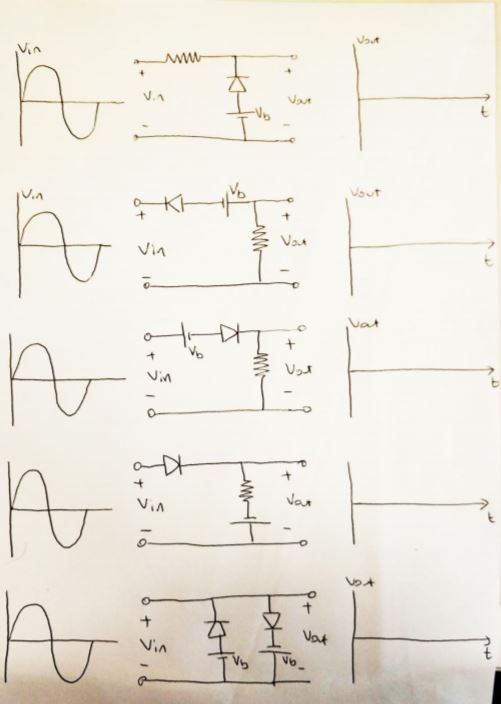 Vin
Vin
+
-
Vb
+
Vout
-
Vout
t
Vin
+
Vin
-
Vb
+
Vout
-
Vout
t
+
Vin
-
Vb
+
Vout
-
Vout
t
+
Vin
-
+
Vout
-
t
+
Vin
-
Vb
Vb
+
Vout
-
Vout
t